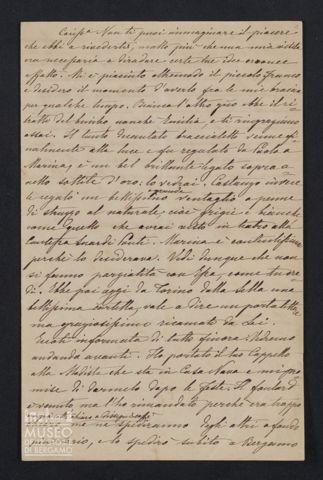 Causa Non ti puoi immaginare il piacere
che ebbi a rivederti, molto più che una mia visita
era necessaria a diradare certe tue idee erronee
affatto. Mi è piaciuto oltremodo il piccolo Franco
e desidero il momento d'averlo fra le mie braccia
per qualche tempo. Bianca l'altro giorno ebbe il ri
tratto del bimbo nonchè Emilia, e ti ringraziano
assai. Il tanto decantato braccialetto venne fi
nalmente alla luce e fu regalato da Paolo a
Marina, è un bel brillante legato sopra a
nello sottile d'oro: lo vedrai. Costanzo invece
le regalò un bellissimo ventaglio grande a penne
di struzzo al naturale, cioè grigie e bianche
come quello che avrai visto in teatro alla
Contessa Suardi Ponti. Marina è contentissima
perchè lo desiderava. Vedi dunque che non
si fanno parzialità con
di. Ebbe poi oggi da Torino dalla Sella una
bellissima cartella, vale a dire un portalette
ma graziosissimo ricamato da Lei.
informata di tutto finora. Vedremo
andando avanti. Ho portato il tuo Cappello
alla Modista che sta in Casa Nava e mi pro
mise di darmelo dopo le feste. Il foulard
è venuto, ma l'ho rimandato perchè era troppo
me ne spediranno degli altri a fondo
più serio, e lo spedirò subito a Bergamo
MUSEO
DI BERGAMO